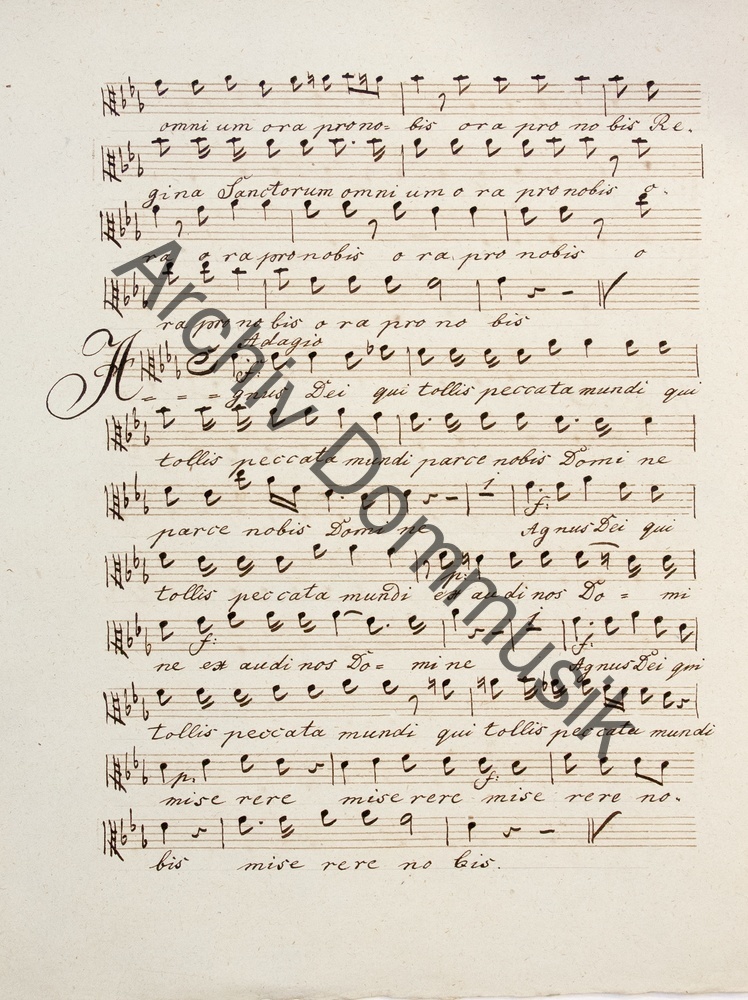 omni um ora pro no= bis ora pro no bis Re.
gina Sanctorum omni um o ra pro nobis o.
ra o ra pro nobis o ra pro nobis o
ra pro no bis o ra pro no bis
Adagio
f:
A - - = gnus Dei qui tollis peccata mundi qui
tollis peccata mundi parce nobis Domi ne
1
f:
parce nobis Domi ne Agnus Dei qui
p:
tollis peccata mundi ex au di nos Do = mi
1
f: f:
ne ex audi nos Do= mi ne Agnus Dei qui
tollis peccata mundi qui tollis peccata mundi
p. f:
mise rere mise rere mise rere no.
bis mise rere no bis.
Archiv Dommusik